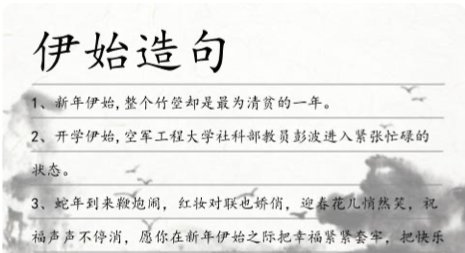 伊始造句
1、新年伊始,整个竹垒却是最为清贫的一年。
2、开学伊始,空军工程大学社科部教员彭波进入紧张忙碌的
状态。
3、蛇年到来鞭炮闹，红妆对联也娇俏，迎春花儿悄然笑，祝
福声声不停消，愿你在新年伊始之际把幸福紧紧套牢，把快乐